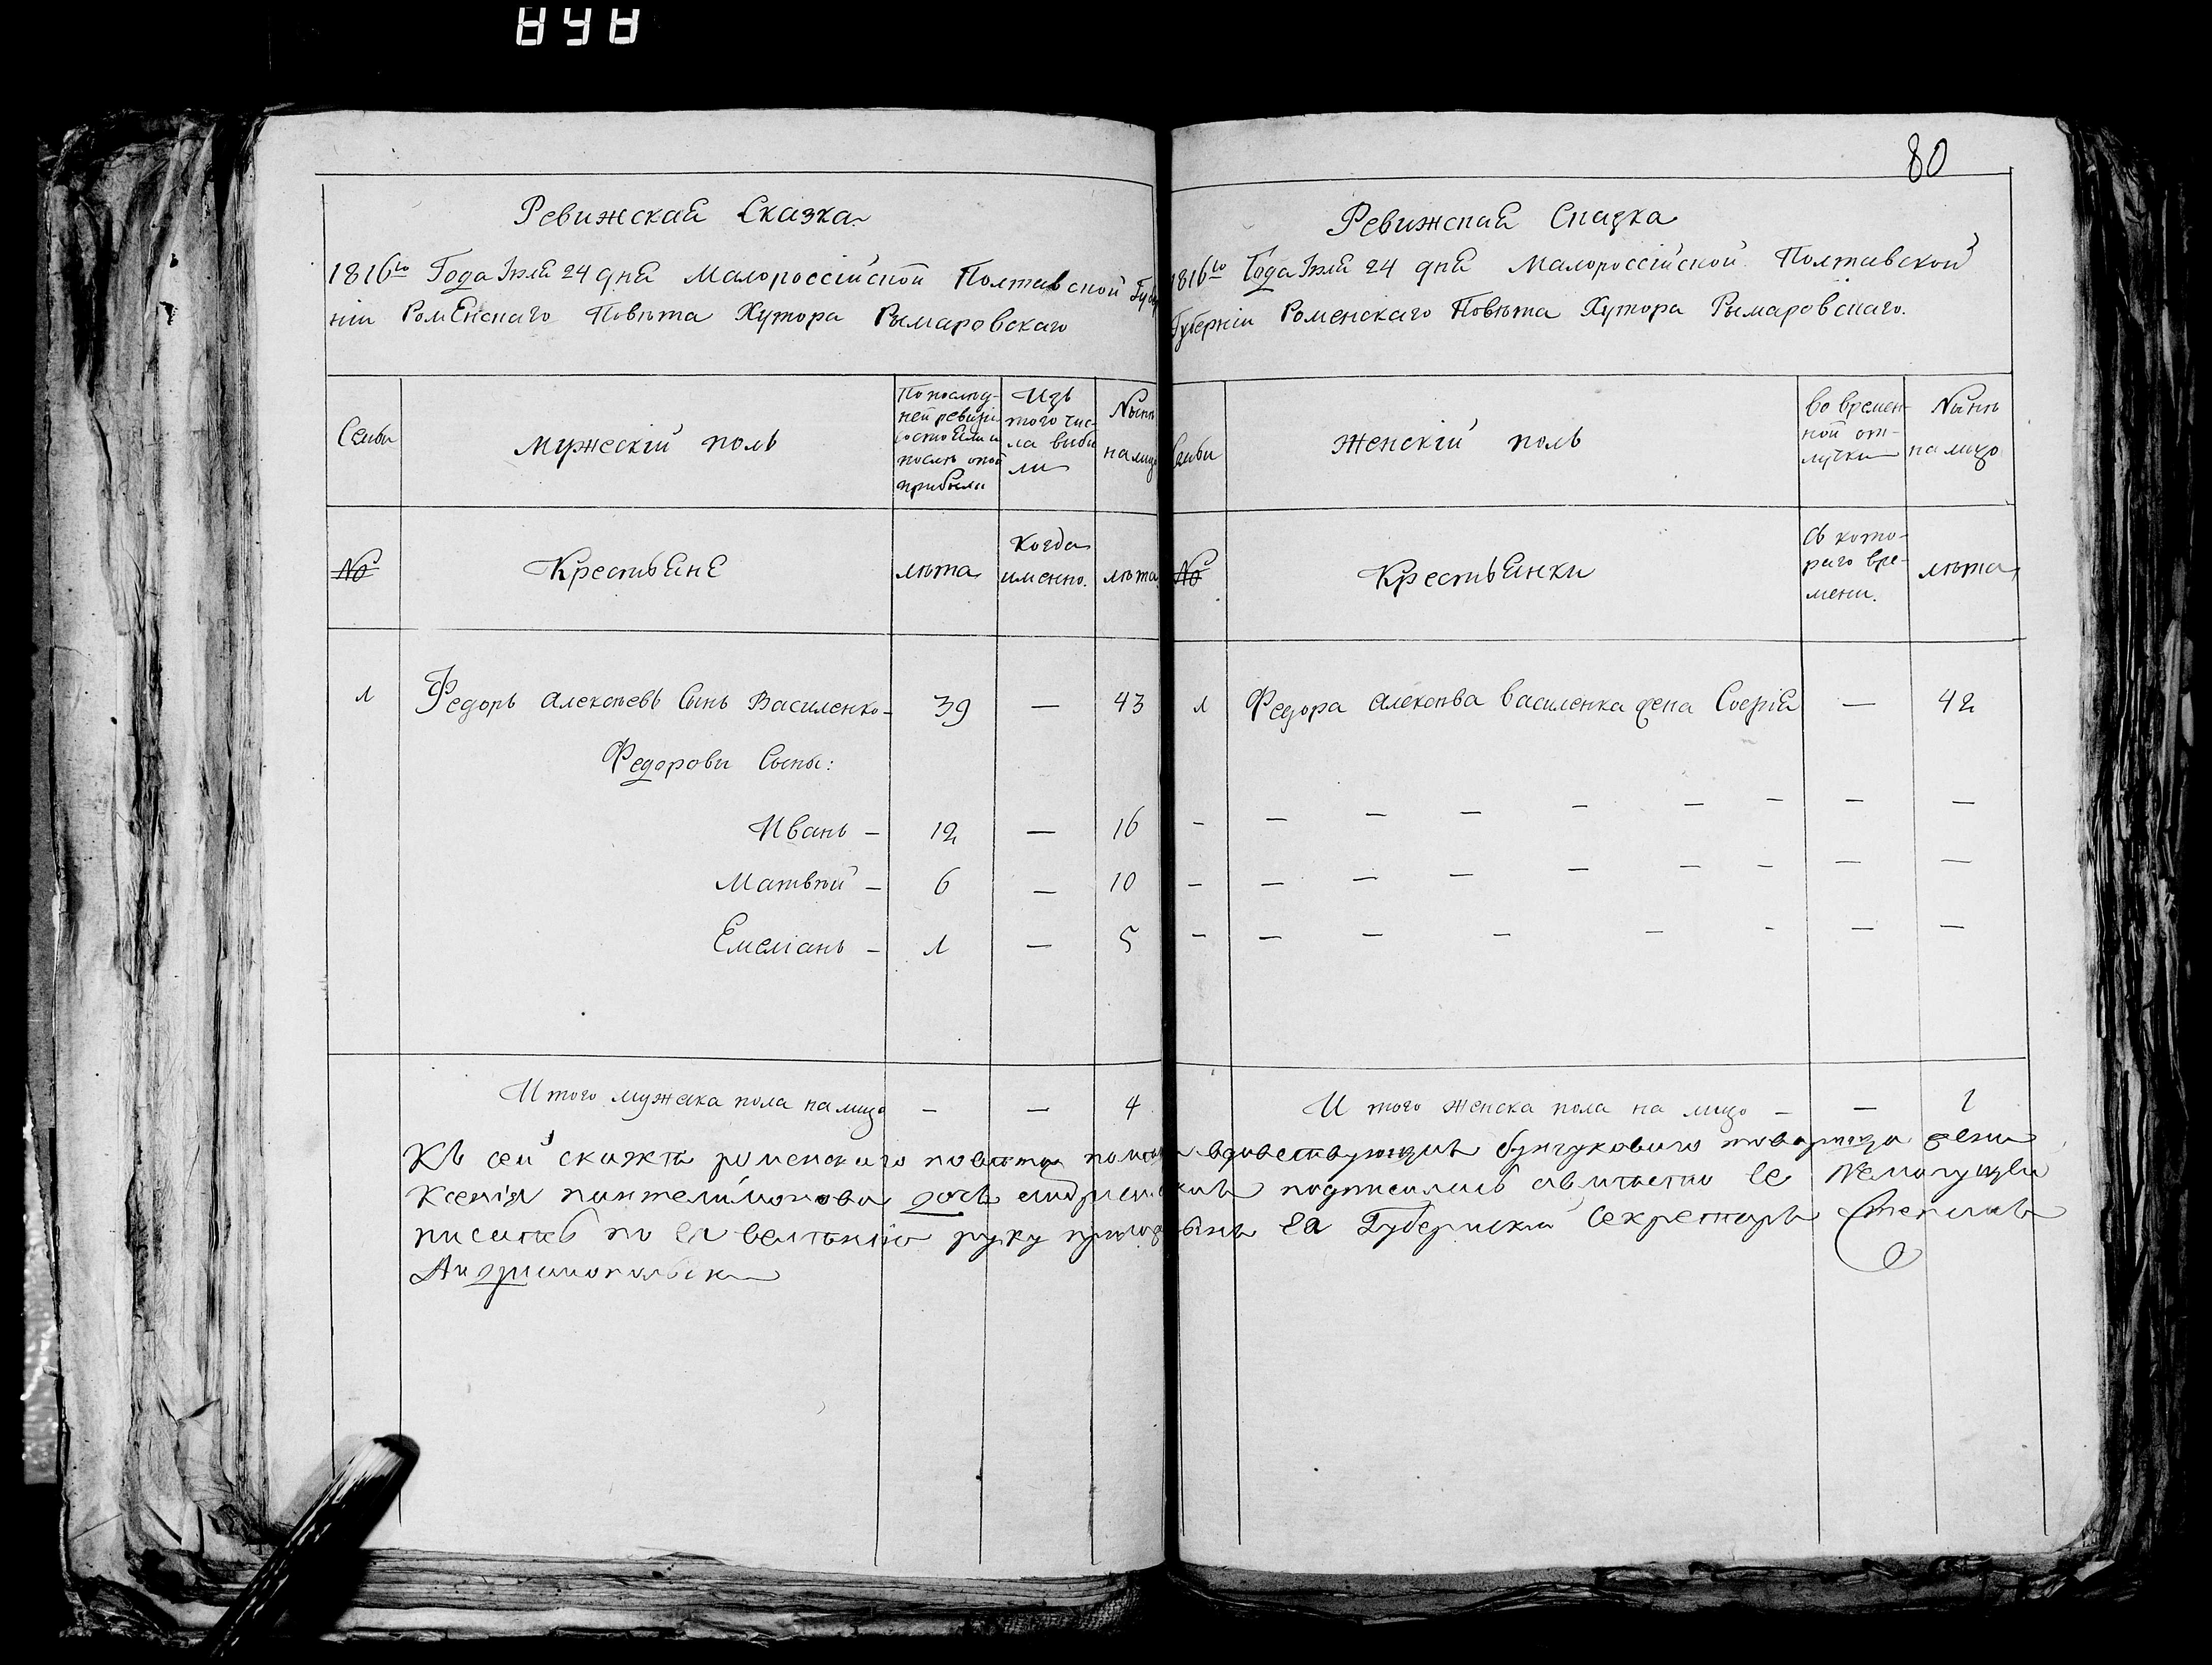 80
Ревижская Сказка
1816го Года Іюля 24 дня Малороссійской Полтавской Губер
ніи Роменскаго Повѣта Хутора Рымаровскаго
Семьи
мужескій полъ
По послѣд-
ней ревизіи
состояли и
послѣ оной
прибыли
Изъ
того чис-
ла выбы
ли
Нынѣ
налицо
№
Крестьяне
лѣта
Когда
именно.
лѣта
1 Федоръ Алексѣевъ Сынъ Василенко - 39 — 43
Федорови Сыны:
Иванъ - 12 — 16
Матвѣй - 6 — 10
Емеліанъ - 1 — 5
Итого мужеска пола налицо — — 4
Ревижская Сказка
1816го Года Іюля 24 дня Малороссійской Полтавской
Губерніи Роменскаго Повѣта Хутора Рымаровскаго.
Семьи
Женскій полъ
Во времен-
ной от-
лучки
Нынѣ
на лицо
№
Крестьянки
Съ кото-
раго вре-
мени.
лѣта
1 Федора Алексѣва Василенка жена Софія — 42
И того женска пола на лицо — — 1
Къ сей скажке роменского повета вдовествующия бунчукового товарища жена
Ксенія пантелимонова дочь подписалась авместо ее немогущей
писать по ея веленію руку приложилъ Губернскій Секретарь